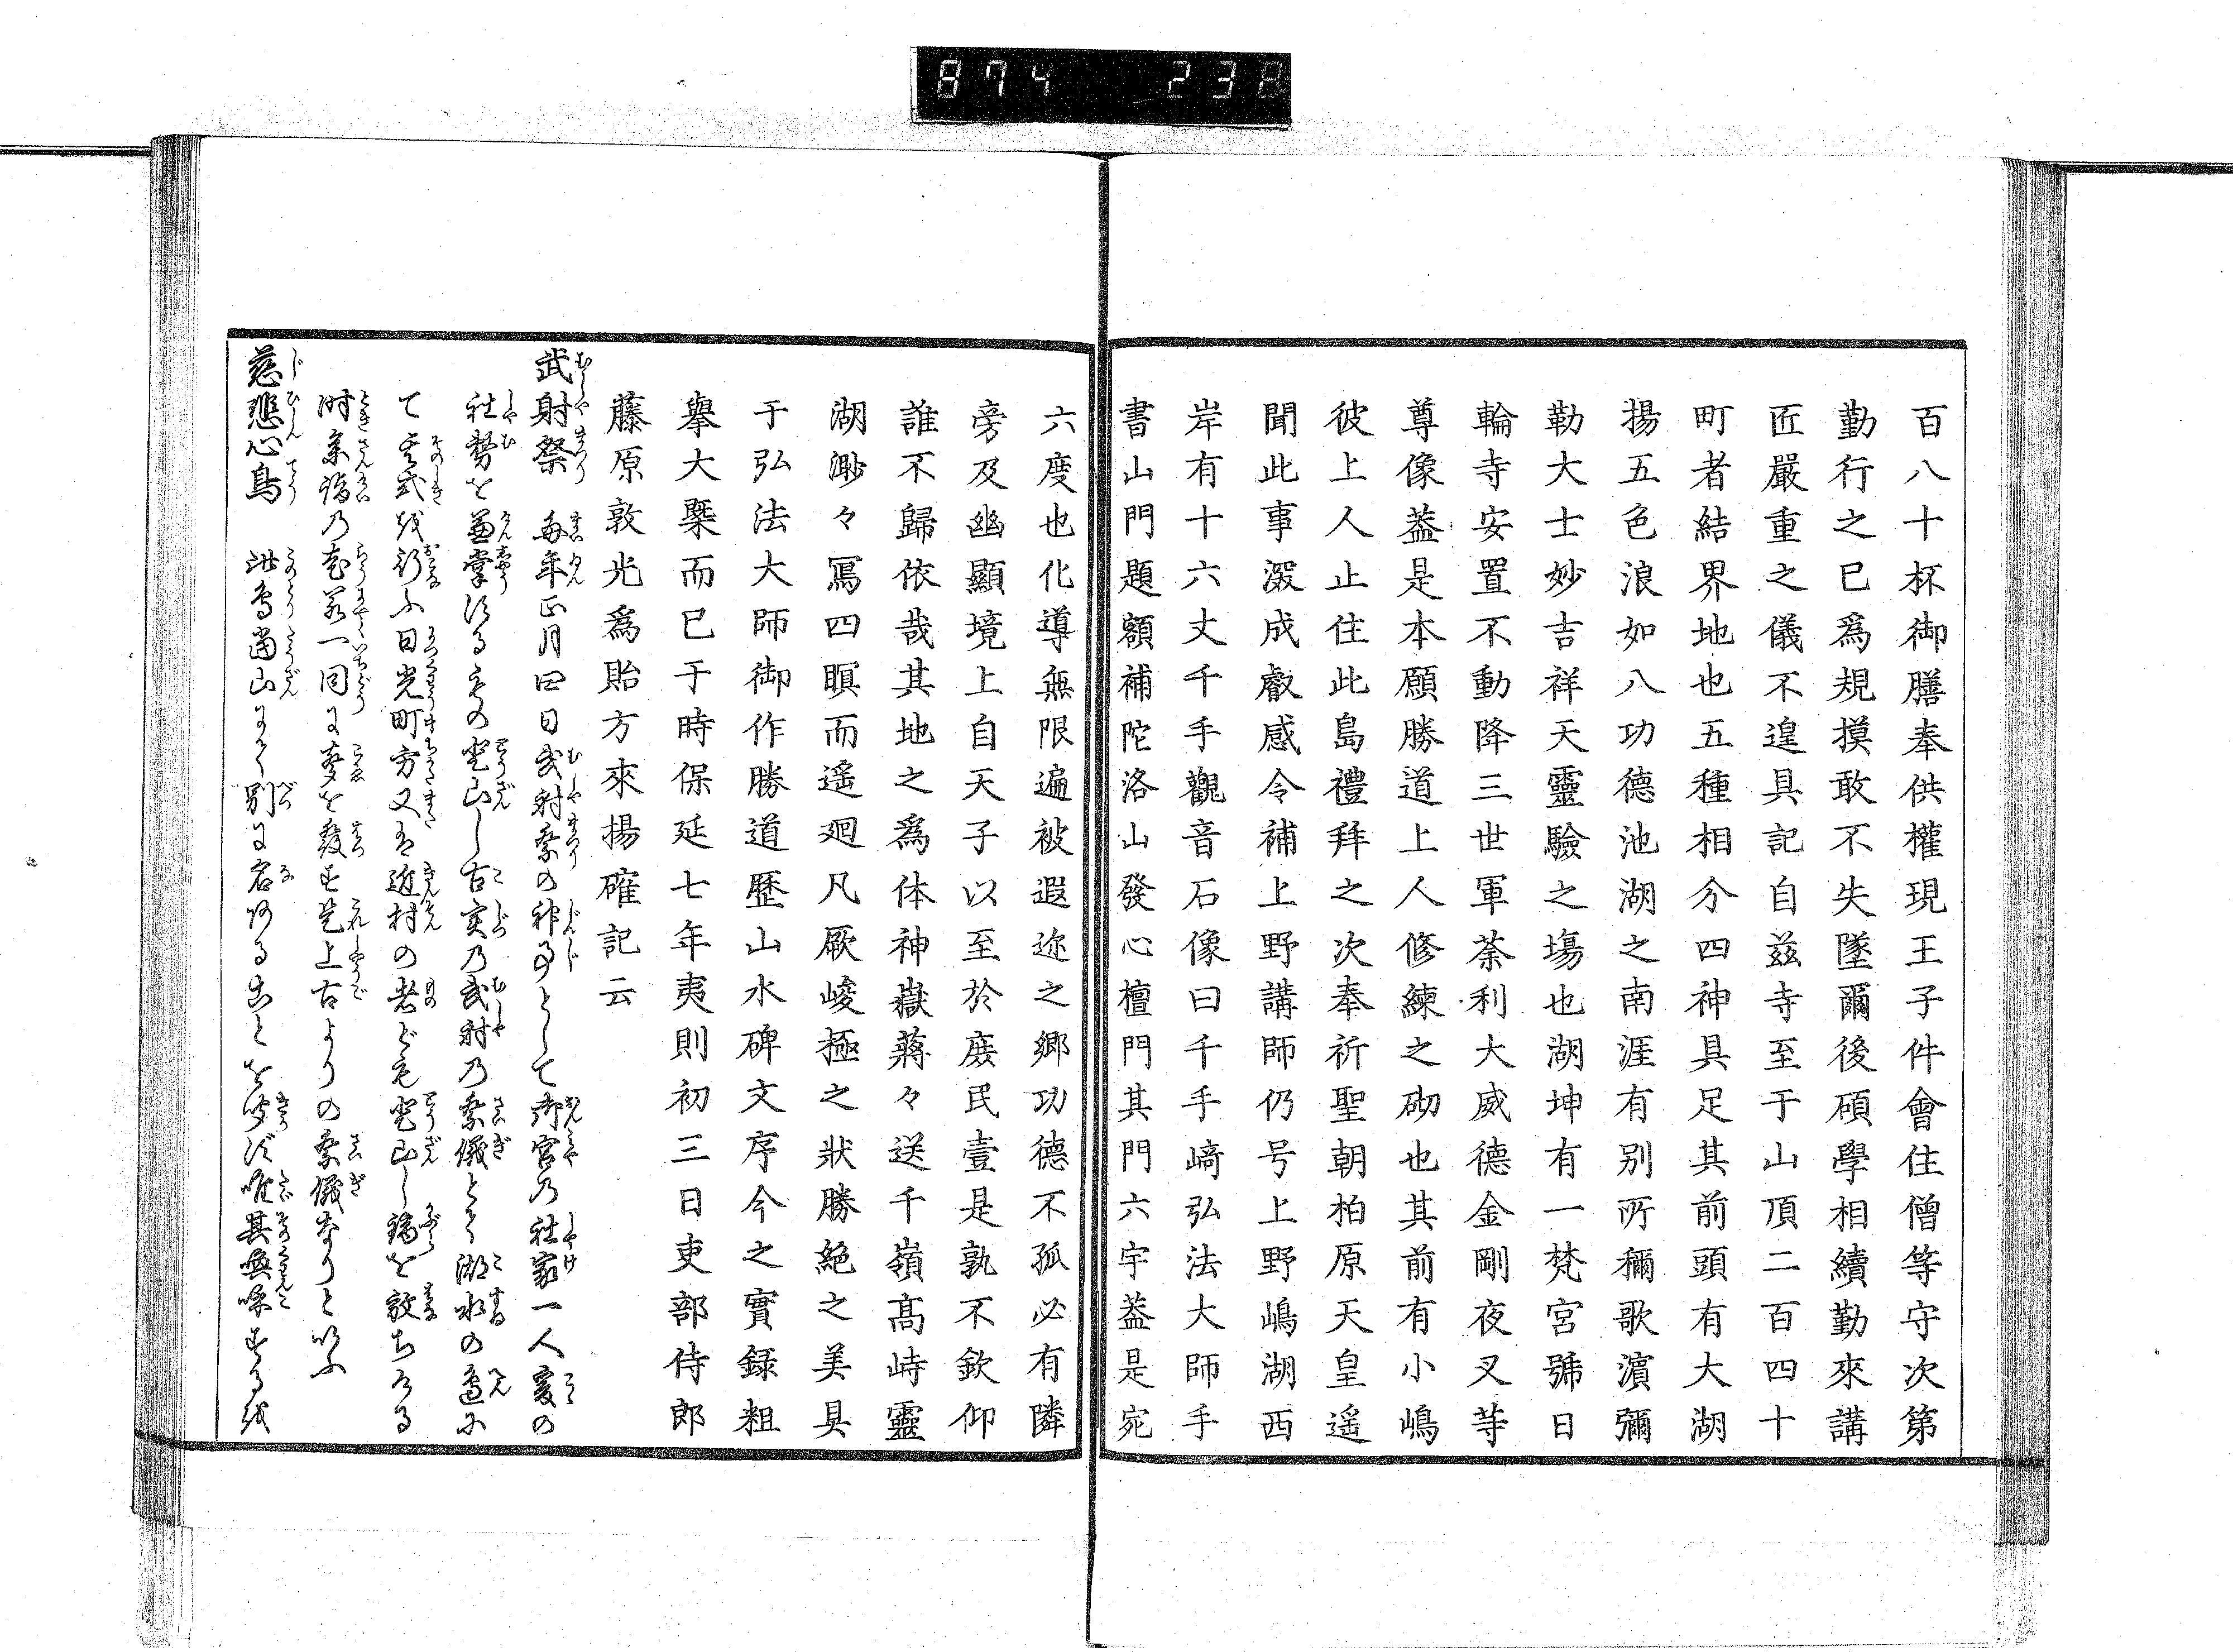 874 238
百八十杯御膳奉供權現王子件會住僧等守次第
勤行之已爲規摸敢不失墜爾後碩學相續勤來講
匠嚴重之儀不遑具記自茲寺至于山頂二百四十
町者結界地也五種相分四神具足其前頭有大湖
揚五色浪如八功德池湖之南涯有別所稱歌濱彌
勒大士妙吉祥天靈驗之塲也湖坤有一梵宮號日
輪寺安置不動降三世軍荼利大威德金剛夜叉等
尊像葢是本願勝道上人修練之砌也其前有小嶋
彼上人止住此島禮拜之次奉祈聖朝柏原天皇遥
聞此事深成叡感令補上野講師仍号上野嶋湖西
岸有十六丈千手觀音石像曰千手﨑弘法大師手
書山門題額補陀洛山發心檀門其門六宇葢是宛
六度也化導無限遍被遐迩之鄉功德不孤必有隣
旁及幽顯境上自天子以至於庶民壹是孰不欽仰
誰不歸依哉其地之爲体神嶽蔣々送千嶺髙峙靈
湖渺々罵四瞑而遥廻凡厥峻極之狀勝絶之美具
于弘法大師御作勝道歷山水碑文序今之實録粗
擧大槩而已于時保延七年夷則初三日吏部侍郎
藤原敦光爲貽方來揚確記云
武射祭 毎年正月四日武射祭の神事として御宮乃社家一人爰の
社務を兼掌するもの登山し古実乃武射乃祭儀とて湖水の邉に
て其式を行ふ日光町方又は近村の者ども登山し鏑を放ちける
時参詣乃老若一同に聲を發す是上古よりの祭儀なりといふ
慈悲心鳥 此鳥當山にて別に名あることを聞ず唯其無喚するを